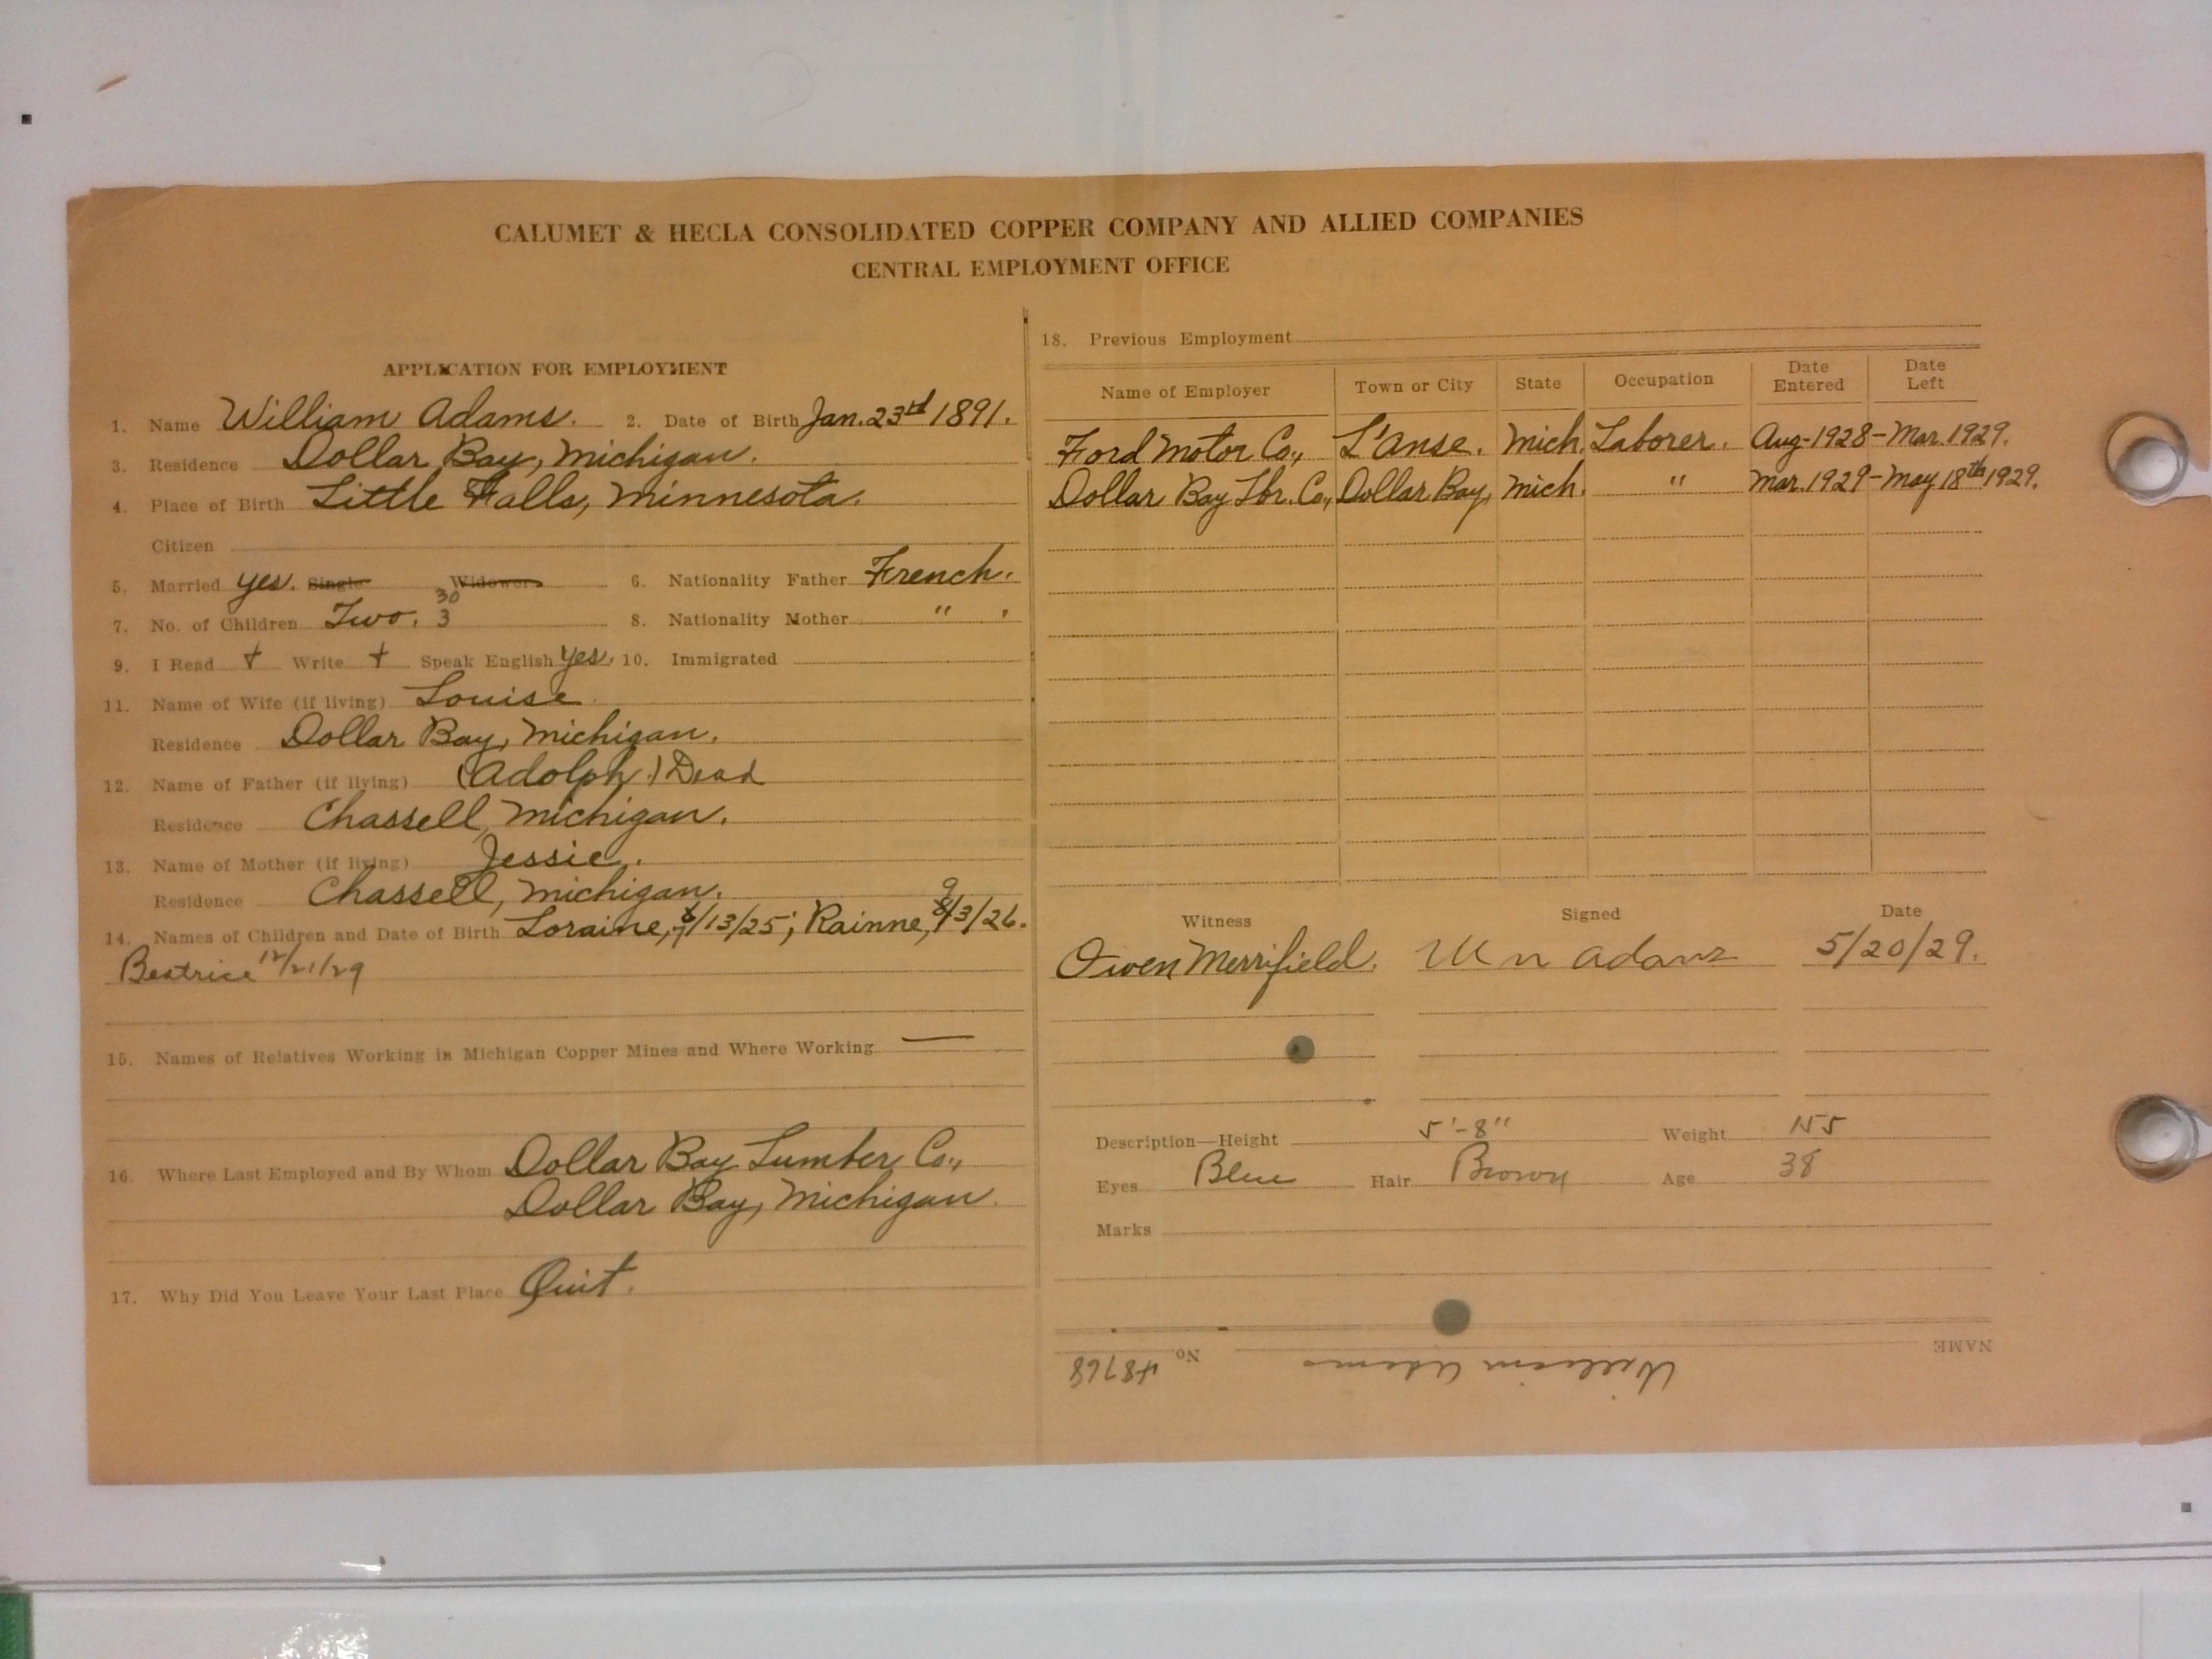 CALUMET & HECLA CONSOLIDATED COPPER COMPANY AND ALLIED COMPANIES
CENTRAL EMPLOYMENT OFFICE
APPLICATION FOR EMPLOYMENT
1. Name William Adams. 2. Date of Birth Jan. 23rd 1891.
3. Residence Dollar Bay, Michigan.
4. Place of Birth Little Falls, Minnesota.
Citizen
5. Married yes. Single Widower 6. Nationality Father French.
30
7. No. of Children Two. 3 8. Nationality Mother " .
9. I Read + Write + Speak English yes. 10. Immigrated
11. Name of Wife (if living) Louise
Residence Dollar Bay, Michigan.
12. Name of Father (if living) (Adolph.) Dead
Residence Chassell, Michigan.
13. Name of Mother (if living) Jessie.
Residence Chassell, Michigan.
14. Names of Children and Date of Birth Loraine, /13/25; Rainne, 9/3/26.
Beatrice 12/21/29
15. Names of Relatives Working in Michigan Copper Mines and Where Working —
16. Where Last Employed and By Whom Dollar Bay Lumber Co.,
Dollar Bay, Michigan.
17. Why Did You Leave Your Last Place Quit.
18. Previous Employment
Name of Employer Town or City State Occupation Date Entered Date Left
Ford Motor Co., L'Anse. Mich. Laborer. Aug-1928 - Mar. 1929.
Dollar Bay Lbr. Co., Dollar Bay, Mich. " Mar. 1929 - May 18th 1929.
Witness Signed Date
Owen Merrifield. Wm Adams 5/20/29.
Description—Height 5'-8" Weight 155
Eyes Blue Hair Brown Age 38
Marks
NAME William Adams No. 48768